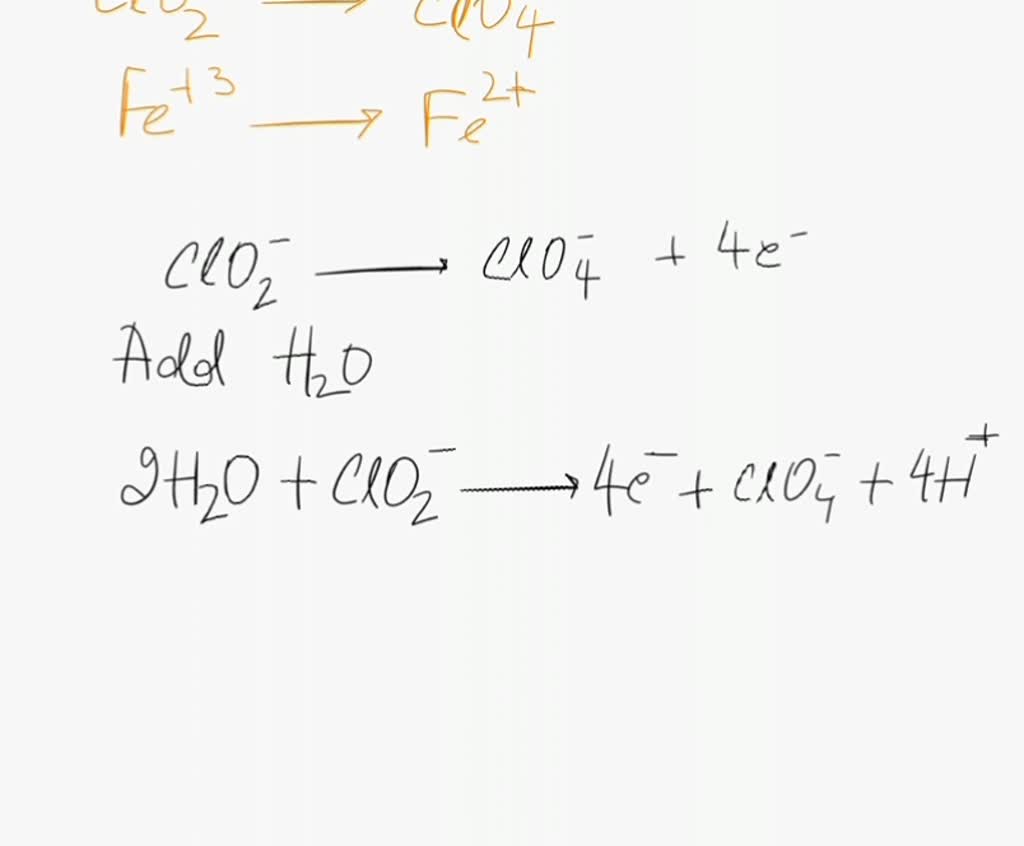 ClO₂ ⟶ ClO₄
Fe⁺³ ⟶ Fe²⁺
ClO₂⁻ ⟶ ClO₄⁻ + 4e⁻
Add H₂O
2H₂O + ClO₂⁻ ⟶ 4e⁻ + ClO₄⁻ + 4H⁺